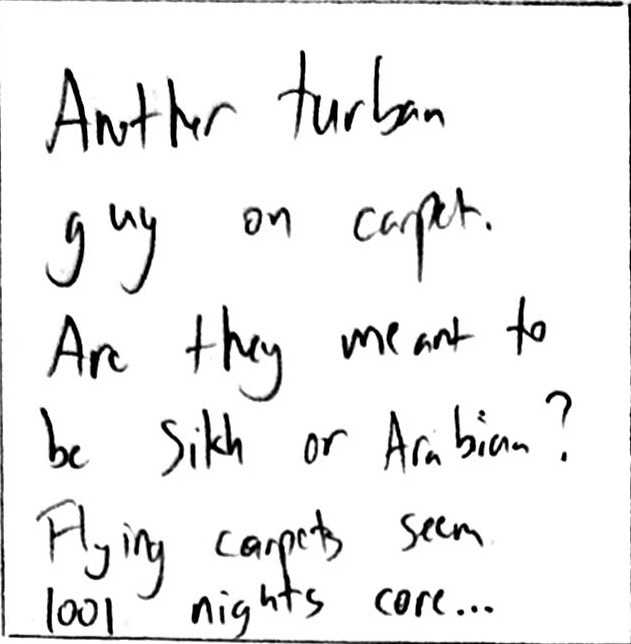 Another turban
guy on carpet.
Are they meant to
be Sikh or Arabian?
Flying carpets seem
1001 nights core...